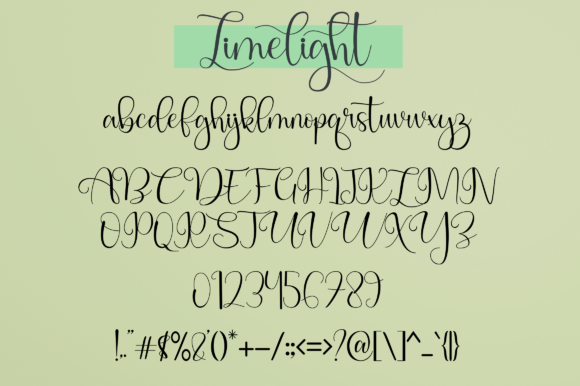 Limelight
abcdefghijklmnopqrstuvwxyz
ABCDEFGHIJKLMN
OPQRSTUVWXYZ
0123456789
!,."#$%&'()*+-/:;<=>?@[\]^_`{|}